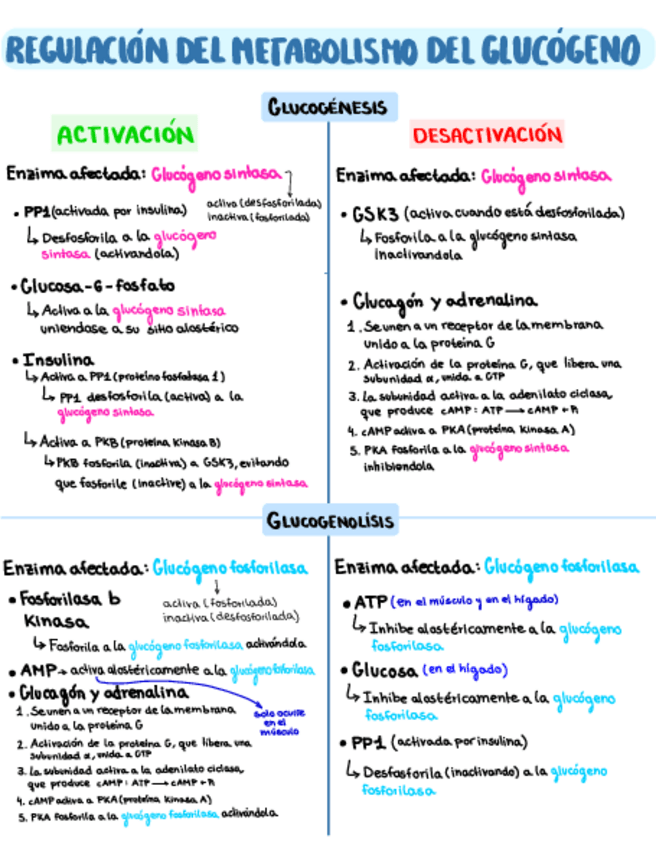 REGULACIÓN DEL METABOLISMO DEL GLUCÓGENO
GLUCOGÉNESIS
ACTIVACIÓN
Enzima afectada: Glucógeno sintasa
activa (desfosforilada)
inactiva (fosforilada)
• PP1 (activada por insulina)
↳ Desfosforila a la glucógeno
sintasa (activandola)
• Glucosa-6-fosfato
↳ Activa a la glucógeno sintasa
uniendose a su sitio alostérico
• Insulina
↳ Activa a PP1 (proteína fosfatasa 1)
↳ PP1 desfosforila (activa) a la
glucógeno sintasa
↳ Activa a PKB (proteína kinasa B)
↳ PKB fosforila (inactiva) a GSK3, evitando
que fosforile (inactive) a la glucógeno sintasa
DESACTIVACIÓN
Enzima afectada: Glucógeno sintasa
• GSK3 (activa cuando está desfosforilada)
↳ Fosforila a la glucógeno sintasa
inactivandola
• Glucagón y adrenalina
1. Se unen a un receptor de la membrana
unido a la proteína G
2. Activación de la proteína G, que libera una
subunidad α, unida a GTP
3. La subunidad activa a la adenilato ciclasa,
que produce cAMP: ATP → cAMP + Pi
4. cAMP activa a PKA (proteína kinasa A)
5. PKA fosforila a la glucógeno sintasa
inhibiendola
GLUCOGENOLÍSIS
Enzima afectada: Glucógeno fosforilasa
activa (fosforilada)
inactiva (desfosforilada)
• Fosforilasa b
Kinasa
↳ Fosforila a la glucógeno fosforilasa activándola
• AMP → activa alostéricamente a la glucógeno fosforilasa
solo ocurre
en el
músculo
• Glucagón y adrenalina
1. Se unen a un receptor de la membrana
unido a la proteína G
2. Activación de la proteína G, que libera una
subunidad α, unida a GTP
3. La subunidad activa a la adenilato ciclasa,
que produce cAMP: ATP → cAMP + Pi
4. cAMP activa a PKA (proteína kinasa A)
5. PKA fosforila a la glucógeno fosforilasa activándola.
Enzima afectada: Glucógeno fosforilasa
• ATP (en el músculo y en el hígado)
↳ Inhibe alostéricamente a la glucógeno
fosforilasa
• Glucosa (en el hígado)
↳ Inhibe alostéricamente a la glucógeno
fosforilasa
• PP1 (activada por insulina)
↳ Desfosforila (inactivando) a la glucógeno
fosforilasa